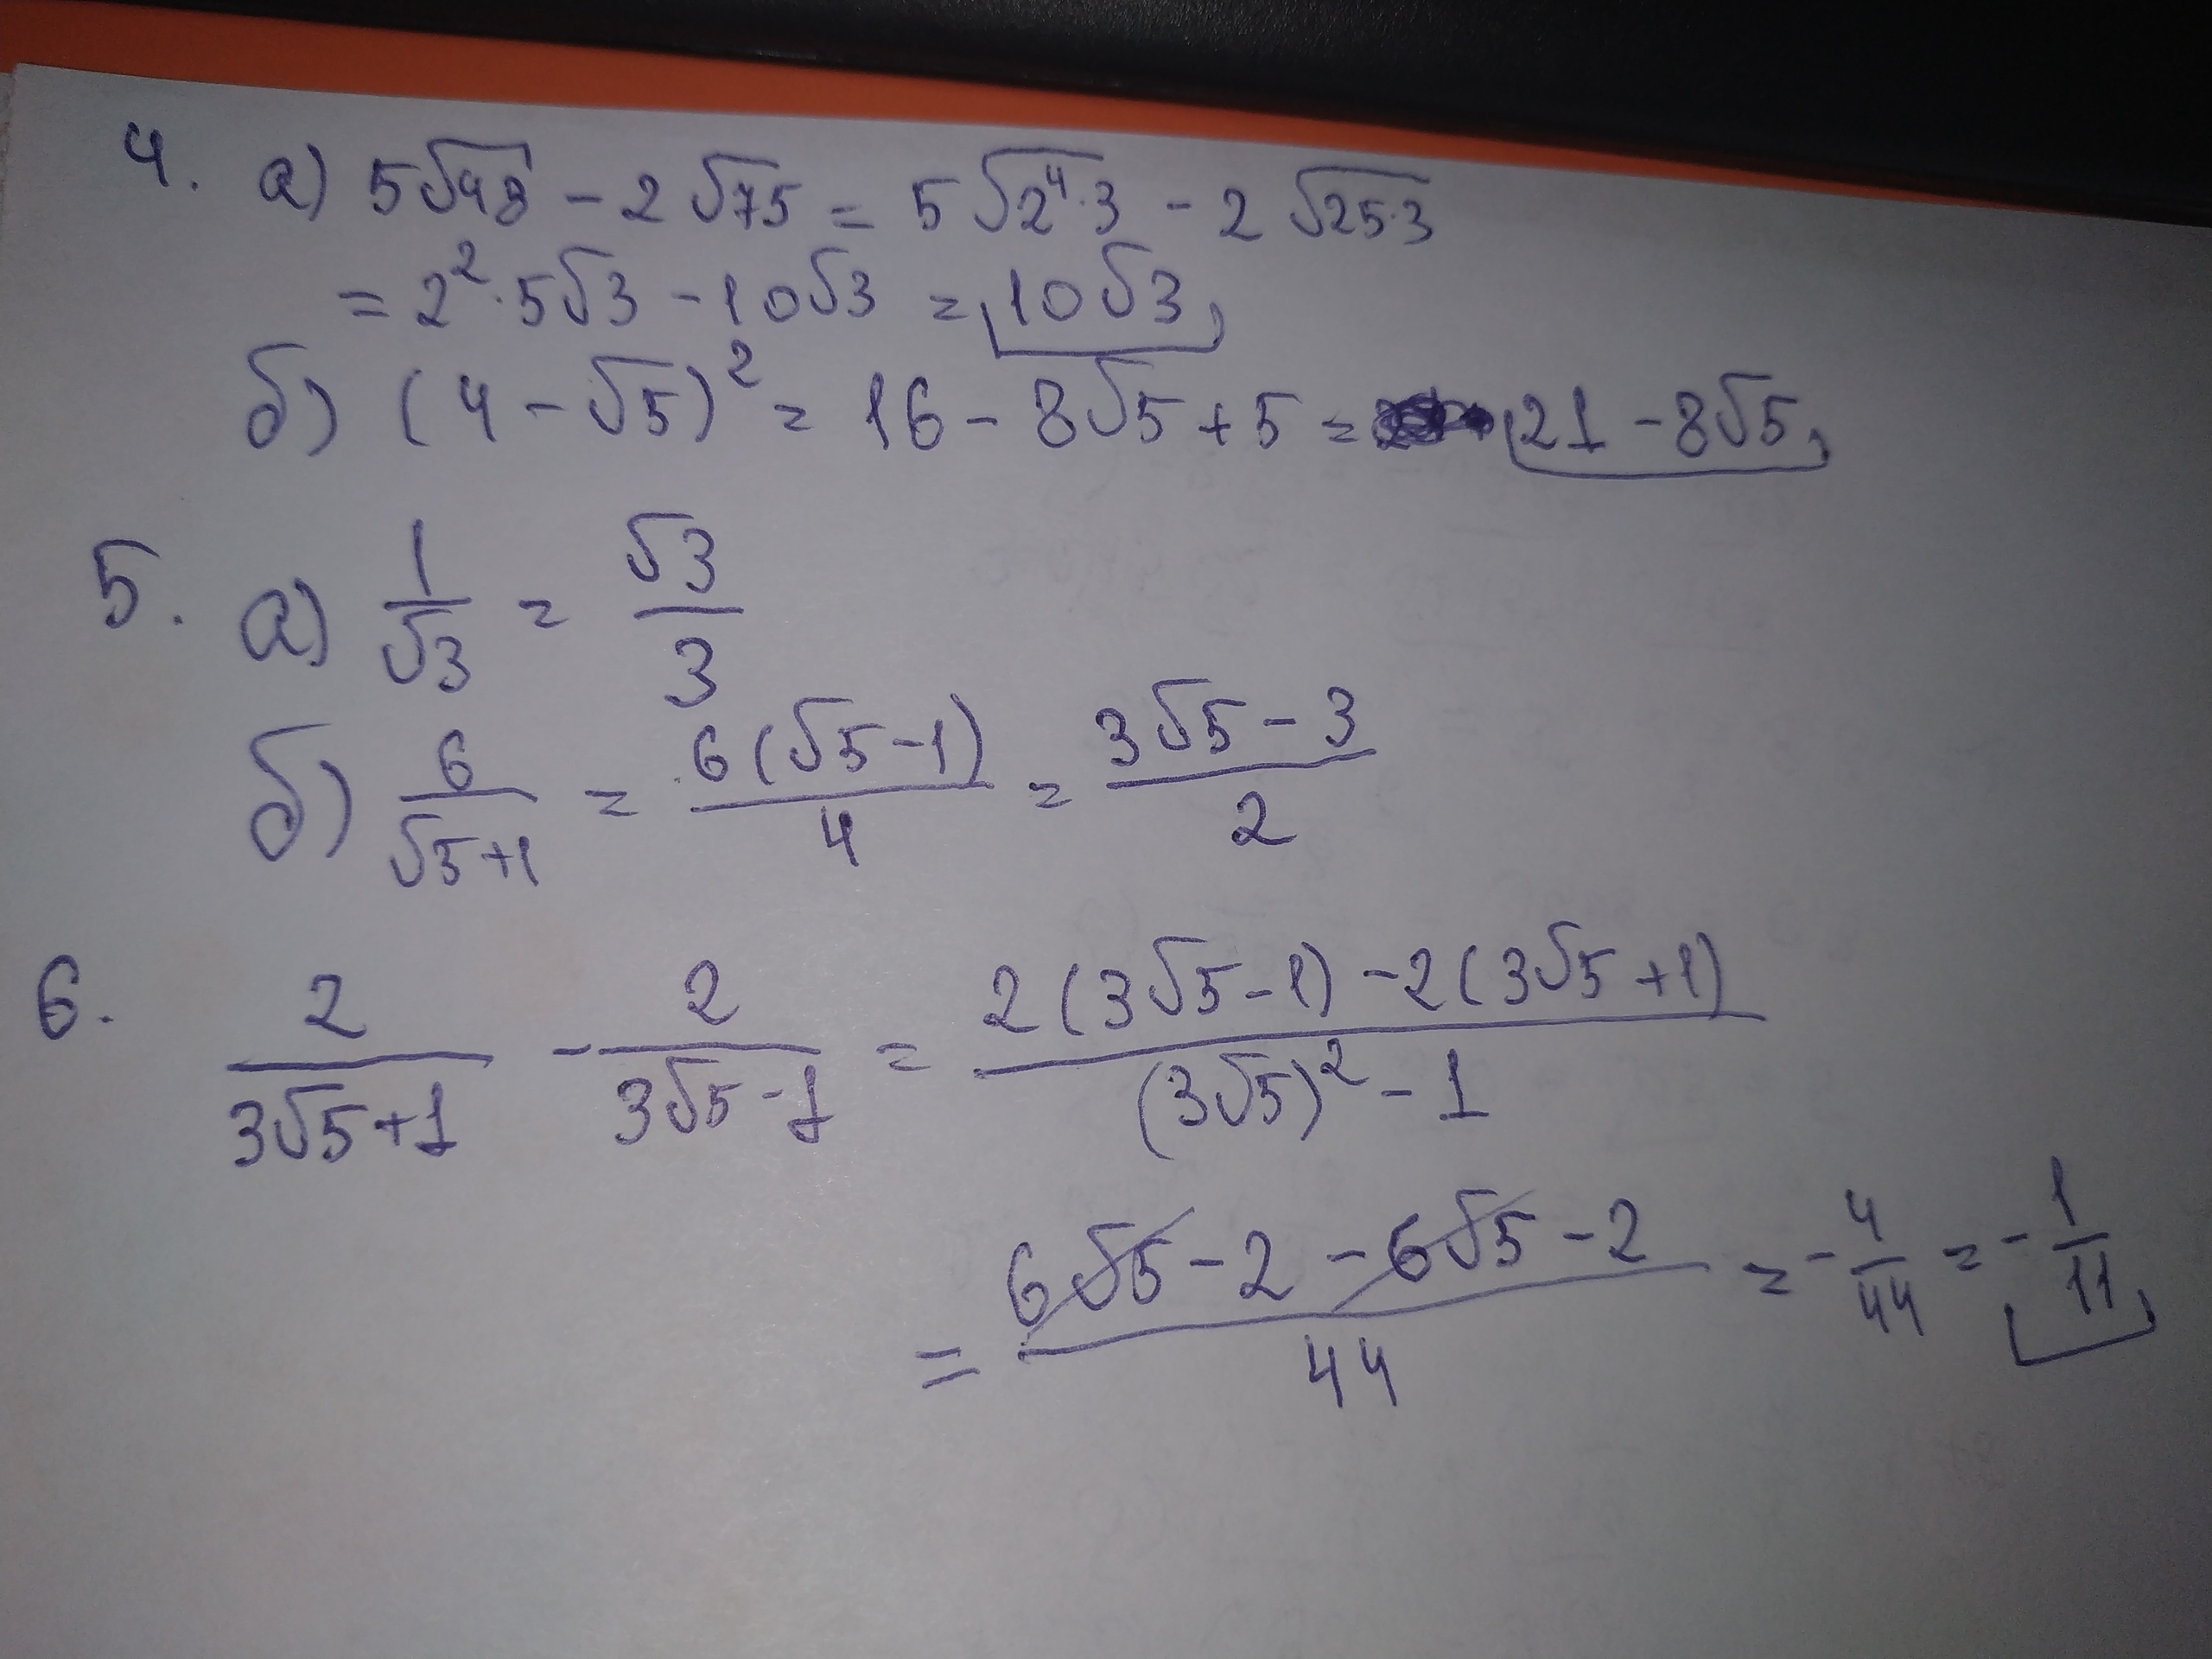 4. а) 5√48 - 2√75 = 5√2⁴·3 - 2√25·3
= 2²·5√3 - 10√3 = 10√3
б) (4 - √5)² = 16 - 8√5 + 5 = 21 - 8√5
5. а) 1/√3 = √3/3
б) 6/(√5+1) = 6(√5-1)/4 = (3√5-3)/2
6. 2/(3√5+1) - 2/(3√5-1) = (2(3√5-1) - 2(3√5+1))/((3√5)² - 1)
= (6√5 - 2 - 6√5 - 2)/44 = -4/44 = -1/11